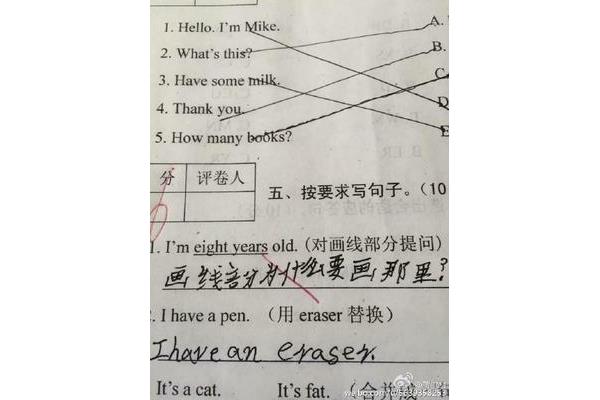 1. Hello. I'm Mike. A.
2. What's this? B.
3. Have some milk. C
4. Thank you. D
5. How many books? E
分 评卷人
五、按要求写句子。(10
1. I'm eight years old. (对画线部分提问)
画线部分为什么要画那里?
2. I have a pen. (用 eraser 替换)
I have an eraser.
It's a cat. It's fat. (合并成